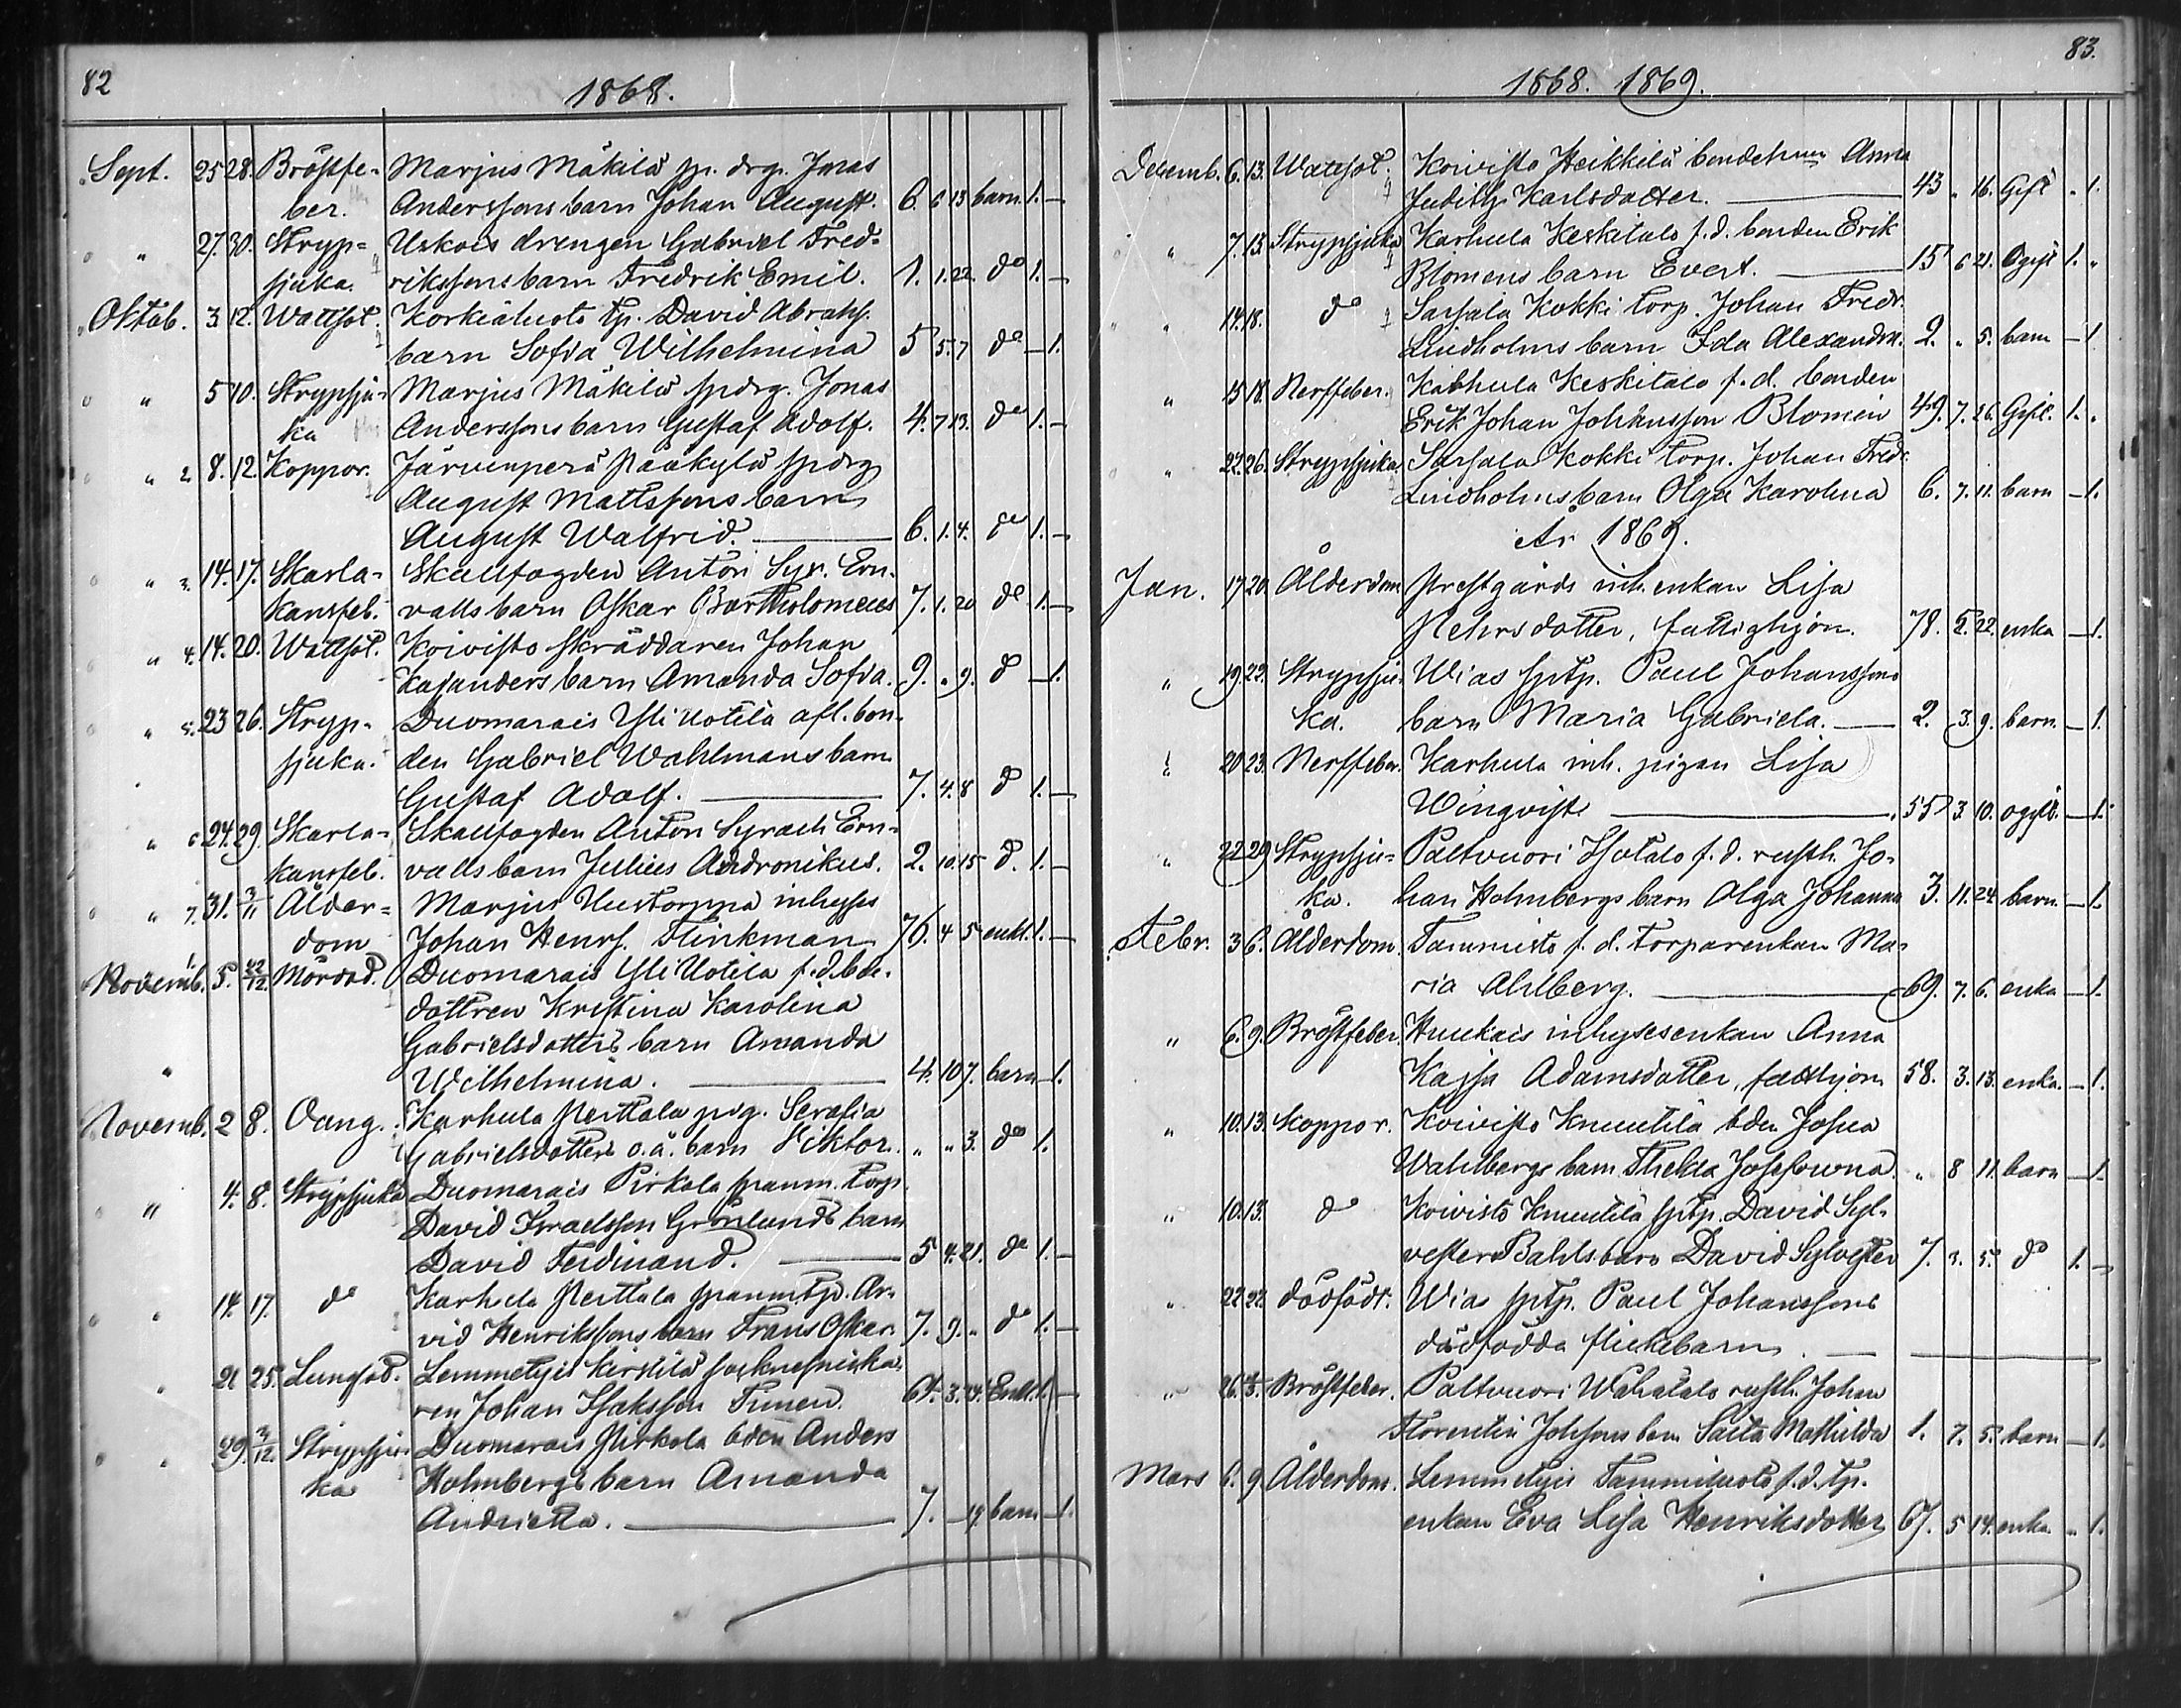 82
1868.
Sept. 25 28. Bröstfe- Marjus Mäkilä sp. drg. Jonas
ber. Anderssons barn Johan August. 6. 6 13 barn. 1. —
" 27. 30. Stryp= Uskois drengen Gabriel Fred-
sjuka. rikssons barn Fredrik Emil. 1. 1. 22. do 1. —
Oktob. 3. 12. Wattsot. Korkialuoto tp. David Abrahs.
barn Sofia Wilhelmina 5 5. 7 do — 1.
" 5 10. Strypsju- Marjus Mäkilä spdrg. Jonas
ka Anderssons barn Gustaf Adolf. 4. 7 13. do 1. —
" 2 8. 12. Koppor. Järvenperä Pääkylä spdrg
August Mattssons barn
August Walfrid. — 6. 1. 4. do 1. —
" 3. 14. 17. Skarla- Skallfogden Anton Syr. Ern-
kansfeb. valls barn Oskar Bartholomeus 7. 1. 20 do 1. —
" 4. 14. 20. Wattsot. Koivisto skräddaren Johan
Kajanders barn Amanda Sofia. 9. " 9. do — 1.
" 5. 23 26. Stryp- Duomarais Yli Uotila afl. bon-
sjuka. den Gabriel Wahlmans barn
Gustaf Adolf. — 7. 4. 8 do 1. —
" 6 24. 29. Skarla- Skallfogden Anton Syrach Ern-
kansfeb. valls barn Julius Andronikus. 2. 10. 15 do. 1. —
" 7. 31. 3/11 Ålder= Marjus Uustorppa inhyses
dom Johan Henrs. Flinkman 76. 4 5 enkl. 1. —
Novemb. 5. 22/12. Mördad. Duomarais Yli Uotila f.d. bde-
dottren Kristina Karolina
Gabrielsdotters barn Amanda
" Wilhelmina. — 4. 10 7. barn — 1.
Novemb. 2 8. Oang. Karhula Perttala pig. Serafia
Gabrielsdotters o.ä. barn Viktor. " " 3. do 1.
" 4. 8. Strypsjuka Duomarais Pirkola spanm. torp.
David Israelsson Grönlunds barn
David Ferdinand. — 5 4. 21. do 1. —
" 14. 17. do Karhula Perttala spanmtp. Ar-
vid Henrikssons barn Frans Oskar. 7. 9. " do 1. —
" 21 25. Lungsot. Lemmetyis Kirstilä
ren Johan Isaksson Timen. 64. 3. 24. Enkl. 1. —
" 29. 3/12. Strypsju- Duomarais Pirkola bden Anders
ka Holmbergs barn Amanda
Andrietta. — 7. — 19. barn — 1.
83.
1868. 1869.
Decemb. 6. 13. Wattsot. Koivisto Heikkilä bondehun Anna
Judith Karlsdotter. — 43 " 16. Gift " 1.
" 7. 13. Strypsjuka Karhula Keskitalo f.d. bonden Erik
Blomens barn Evert. — 15 6 21. Ogift 1. "
" 14. 18. do Sarsala Kokki torp. Johan Fredr.
Lindholms barn Ida Alexandra. 2. " 5. barn — 1
" 15 18. Nerffeber. Karhula Keskitalo f.d. bonden
Erik Johan Johansson Blomen 49. 7. 26. Gift. 1. "
" 22. 26. Strypsjuka. Sarsala Kokki torp. Johan Fredr.
Lindholms barn Olga Karolina 6. 7. 11. barn — 1.
År 1869.
Jan. 17 20. Ålderdom Prestgårds inh. enkan Lisa
Pehrsdotter, fattighjon. 78. 5. 22. enka — 1.
" 19. 23. Strypsju- Wias sptp. Paul Johanssons
ka. barn Maria Gabriela. — 2. 3. 9. barn. — 1.
" 20 23. Nerffeber. Karhula inh. pigan Lisa
Winqvist — 55 3. 10. ogift. — 1.
" 22 29 Strypsju= Paltvuori Isotalo f.d. rusth. Jo-
ka. han Holmbergs barn Olga Johanna 3. 11. 24 barn. — 1.
Febr. 3 6. Ålderdom. Tammisto f.d. torparenkan Ma-
ria Ahlberg. — 69. 7. 6. enka — 1.
" 6. 9. Bröstfeber. Hunkais inhysesenkan Anna
Kajsa Adamsdotter, fatthjon. 58. 3. 13. enka. — 1.
" 10. 13. Koppor. Koivisto Knuutila bden Josua
Wahlbergs barn Thekla Josefowna " 8 11. barn — 1.
" 10. 13. do Koivisto Knuutila sptp. David Syl-
vester Bahls barn David Sylvester 7. 3. 5. do 1. —
" 22 22. dödfödt. Wias sptp. Paul Johanssons
dödfödda flickebarn. —
" 26. 4/3. Bröstfeber. Paltvuori Wähätalo rusth. Johan
Florentin Johssons barn Saita Mathilda 1. 7. 5. barn — 1.
Mars 6. 9. Ålderdom. Lemmetyis Tammiluoto f.d. tp.
enkan Eva Lisa Henriksdotter 67. 5 14. enka. " 1.